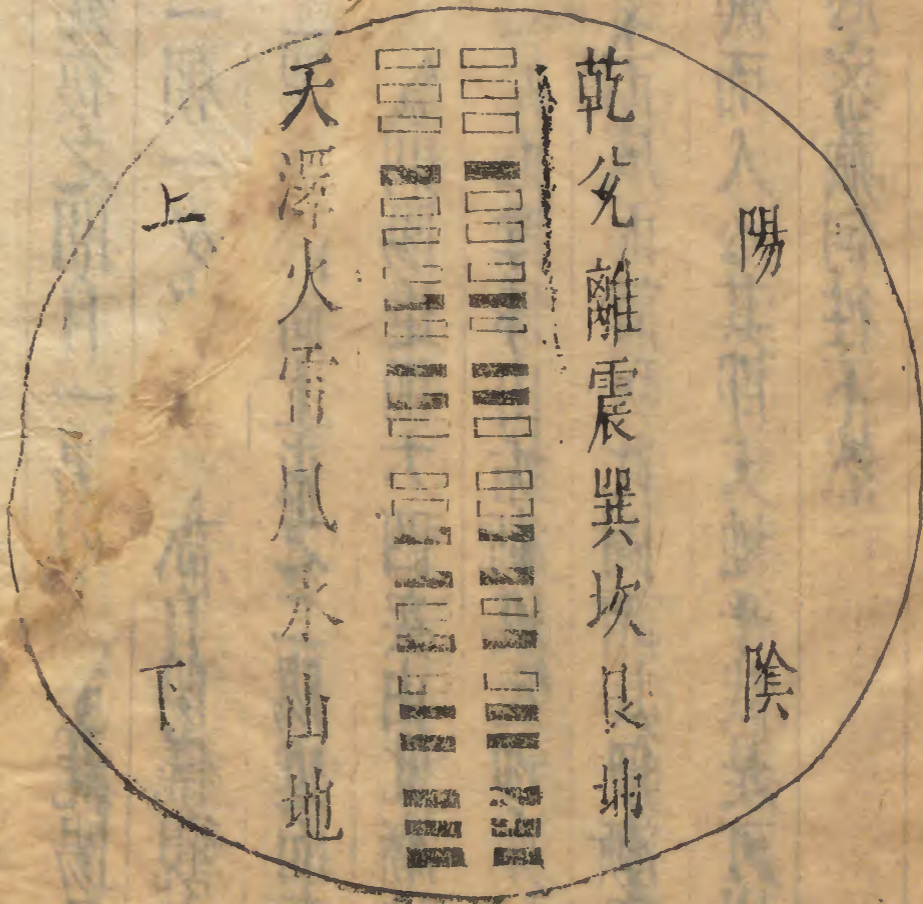 陽 陰
乾兌離震巽坎艮坤
天澤火雷風水山地
上 下